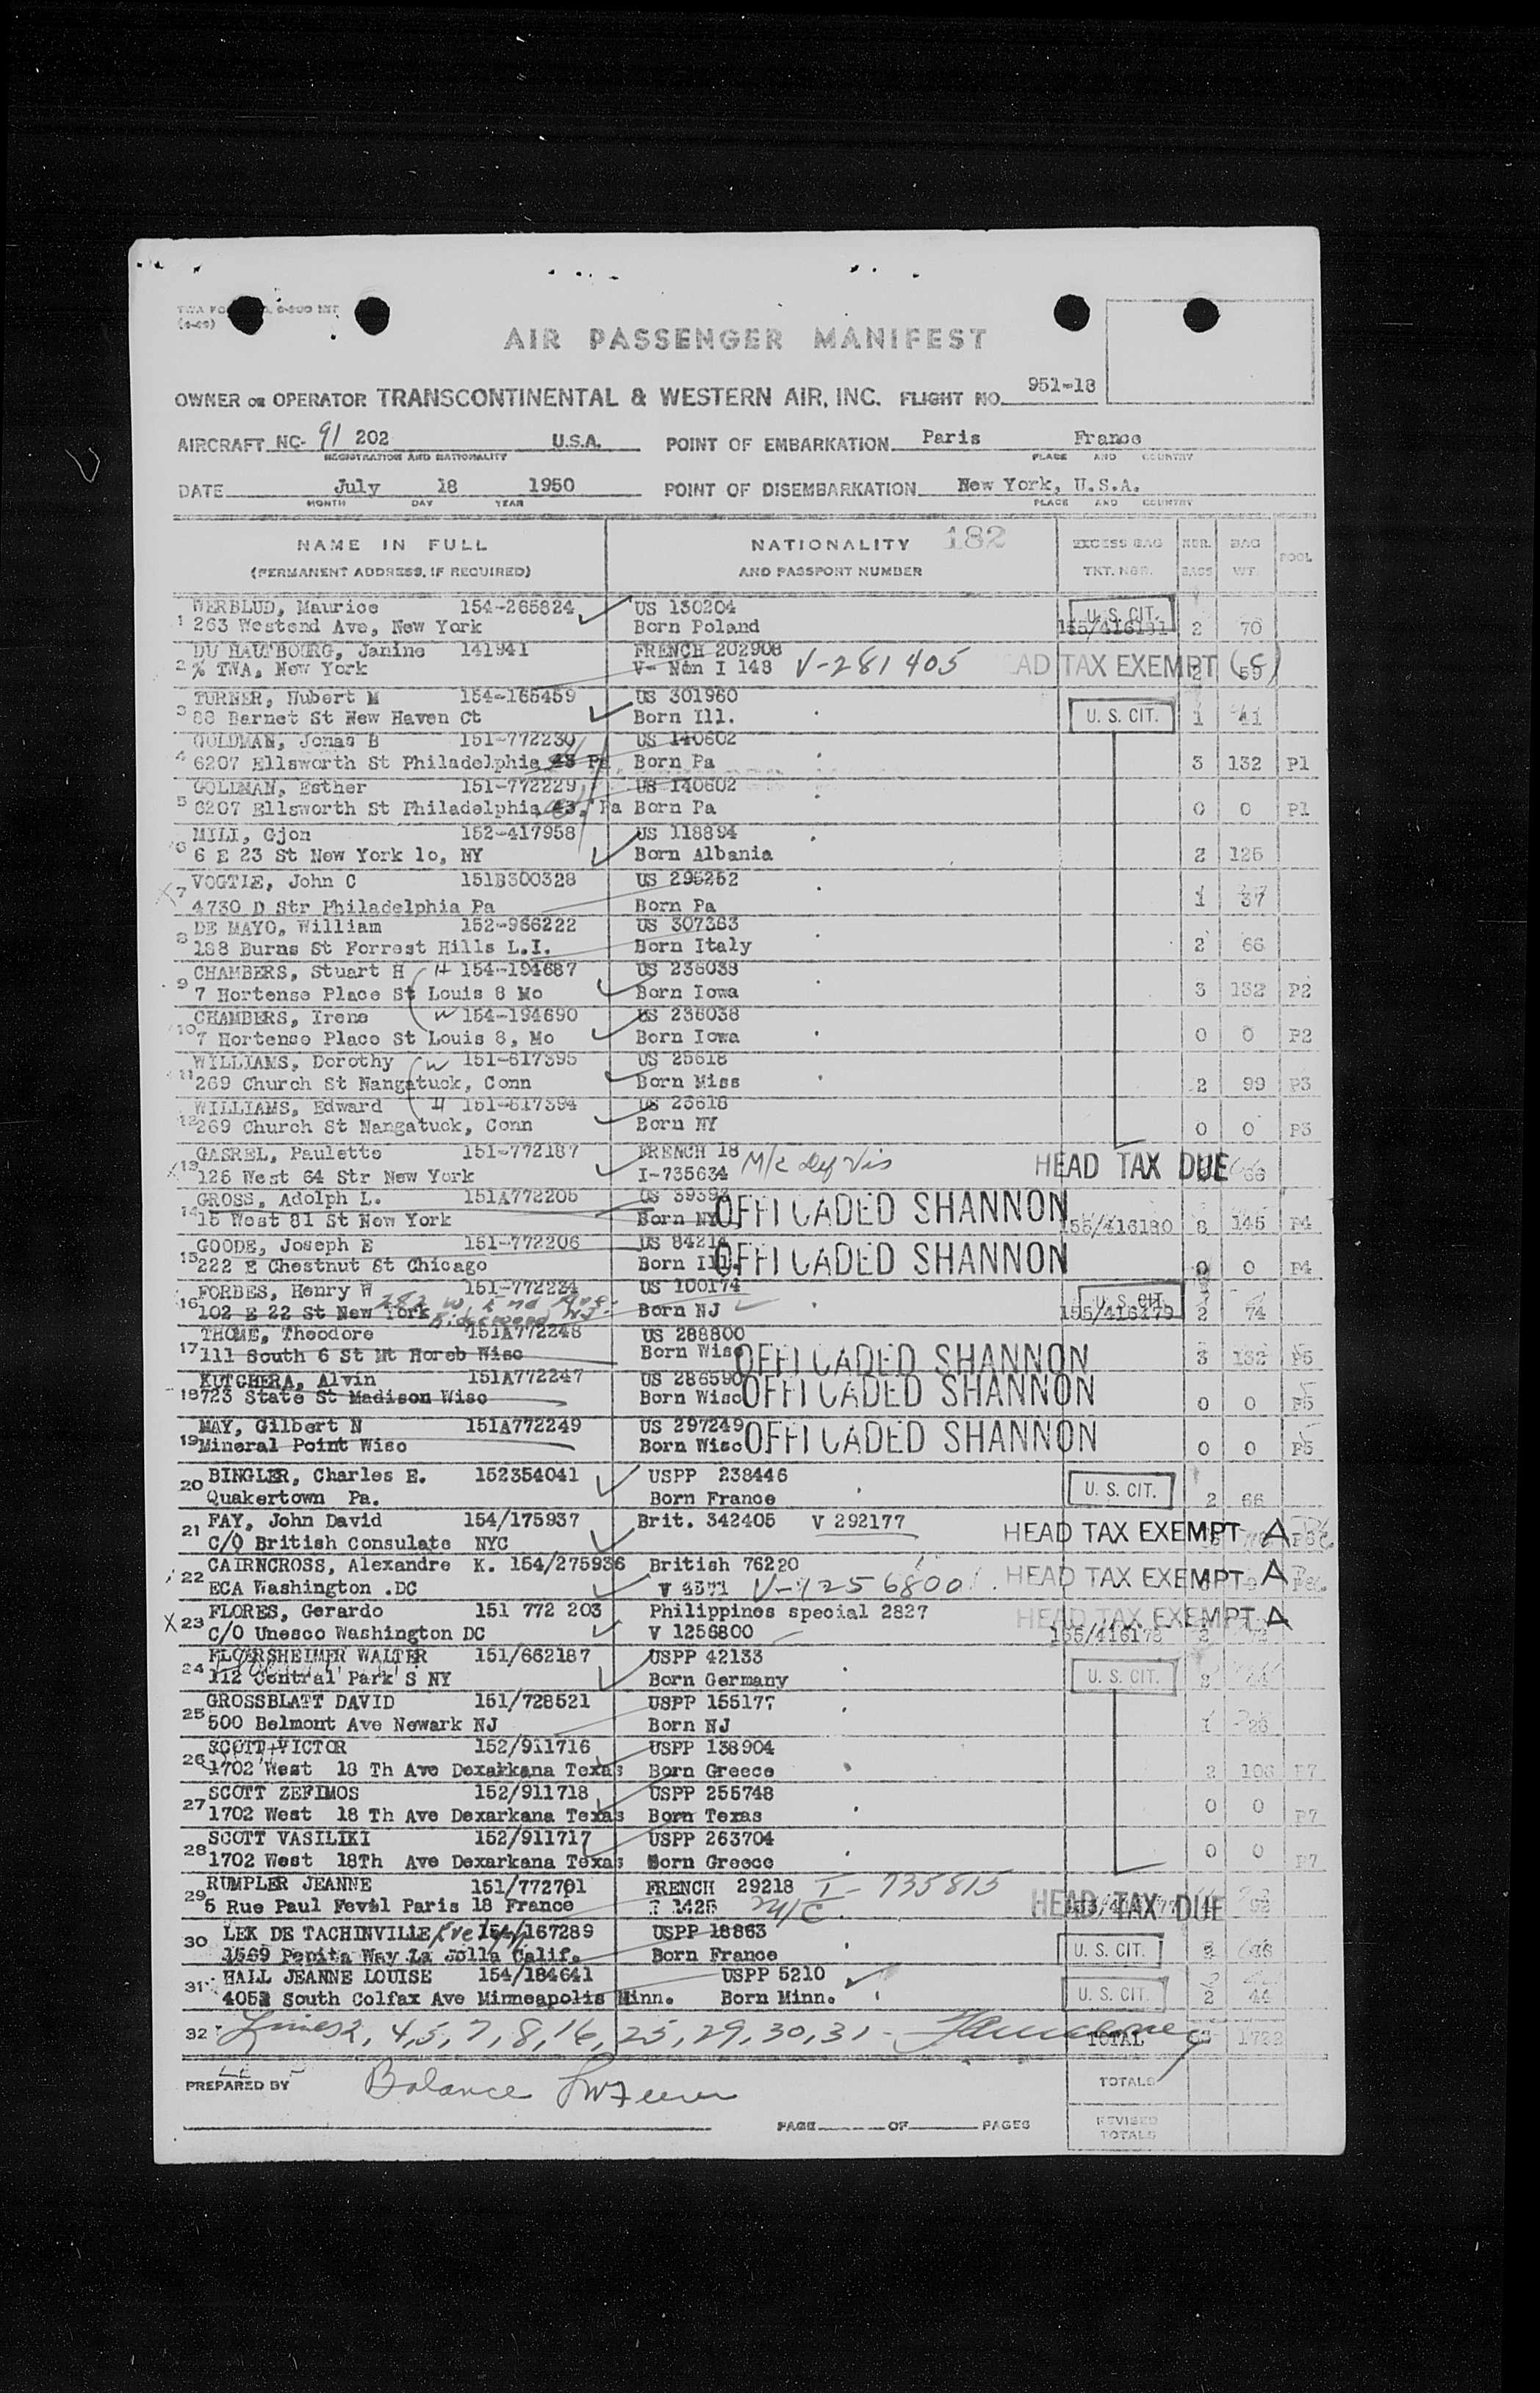 AIR PASSENGER MANIFEST
OWNER OR OPERATOR TRANSCONTINENTAL & WESTERN AIR, INC. FLIGHT NO. 951-18
AIRCRAFT NC- 91 202 U.S.A. POINT OF EMBARKATION Paris France
REGISTRATION AND NATIONALITY PLACE AND COUNTRY
DATE July 18 1950 POINT OF DISEMBARKATION New York, U.S.A.
MONTH DAY YEAR PLACE AND COUNTRY
NAME IN FULL NATIONALITY 182 EXCESS BAG NBR. BAG POOL
(PERMANENT ADDRESS, IF REQUIRED) AND PASSPORT NUMBER TKT. NBR. BAGS WT.
WERBLUD, Maurice 154-265824 US 130204 U.S. CIT.
1 263 Westend Ave, New York Born Poland 155/416181 2 70
DU HAUTBOURG, Janine 141941 FRENCH 202908
2 % TWA, New York V- Non I 148 V-281405 HEAD TAX EXEMPT 2 59
TURNER, Hubert M 154-165459 US 301960
3 88 Barnet St New Haven Ct Born Ill. U. S. CIT. 1 41
GOLDMAN, Jonas B 151-772230 US 140602
4 6207 Ellsworth St Philadelphia 43 Pa Born Pa 3 132 P1
GOLDMAN, Esther 151-772229 US 140602
5 6207 Ellsworth St Philadelphia 43, Pa Born Pa 0 0 P1
MILI, Gjon 152-417958 US 118894
6 6 E 23 St New York lo, NY Born Albania 2 125
VOGTLE, John C 151B300328 US 295252
7 4730 D Str Philadelphia Pa Born Pa 1 37
DE MAYO, William 152-966222 US 307363
8 188 Burns St Forrest Hills L.I. Born Italy 2 66
CHAMBERS, Stuart H H 154-194687 US 236038
9 7 Hortense Place St Louis 8 Mo Born Iowa 3 132 P2
CHAMBERS, Irene W 154-194690 US 236038
10 7 Hortense Place St Louis 8, Mo Born Iowa 0 0 P2
WILLIAMS, Dorothy W 151-617395 US 25618
11 269 Church St Nangatuck, Conn Born Miss 2 99 P3
WILLIAMS, Edward H 151-617394 US 25618
12 269 Church St Nangatuck, Conn Born NY 0 0 P3
GASREL, Paulette 151-772187 FRENCH 18
13 126 West 64 Str New York I-735634 HEAD TAX DUE 66
GROSS, Adolph L. 151A772205 US 39392 OFFLOADED SHANNON
14 15 West 81 St New York Born NY 155/416180 8 145 P4
GOODE, Joseph E 151-772206 US 84214 OFFLOADED SHANNON
15 222 E Chestnut St Chicago Born Ill. 0 0 P4
FORBES, Henry W 151-772224 US 100174 U.S. CIT.
16 102 E 22 St New York Born NJ 155/416179 2 74
THOME, Theodore 151A772248 US 288800
17 111 South 6 St Mt Horeb Wisc Born Wisc OFFLOADED SHANNON 3 132 P5
KUTCHERA, Alvin 151A772247 US 286590
18 723 State St Madison Wisc Born Wisc OFFLOADED SHANNON 0 0 P5
MAY, Gilbert N 151A772249 US 297249
19 Mineral Point Wisc Born Wisc OFFLOADED SHANNON 0 0 P5
BINGLER, Charles E. 152354041 USPP 238446
20 Quakertown Pa. Born France U. S. CIT. 2 66
21 FAY, John David 154/175937 Brit. 342405 V 292177
C/O British Consulate NYC HEAD TAX EXEMPT A
CAIRNCROSS, Alexandre K. 154/275936 British 76220
22 ECA Washington .DC V-1256800 HEAD TAX EXEMPT A
X 23 FLORES, Gerardo 151 772 203 Philippines special 2827 HEAD TAX EXEMPT A
C/O Unesco Washington DC V 1256800 155/416178 2
FLOERSHEIMER WALTER 151/662187 USPP 42133
24 112 Central Park S NY Born Germany U. S. CIT. 2 44
GROSSBLATT DAVID 151/728521 USPP 155177
25 500 Belmont Ave Newark NJ Born NJ 1 26
SCOTT VICTOR 152/911716 USPP 138904
26 1702 West 18 Th Ave Dexarkana Texas Born Greece 2 106 P7
SCOTT ZEFIMOS 152/911718 USPP 255748
27 1702 West 18 Th Ave Dexarkana Texas Born Texas 0 0 P7
SCOTT VASILIKI 152/911717 USPP 263704
28 1702 West 18Th Ave Dexarkana Texas Born Greece 0 0 P7
RUMPLER JEANNE 151/772701 FRENCH 29218 I-735815
29 5 Rue Paul Feval Paris 18 France M/C HEAD TAX DUE
30 LEK DE TACHINVILLE 154/167289 USPP 18863
1569 Pepita Way La Jolla Calif. Born France U. S. CIT.
31 HALL JEANNE LOUISE 154/184641 USPP 5210
4052 South Colfax Ave Minneapolis Minn. Born Minn. U. S. CIT. 2 44
32 Lines 2, 4, 5, 7, 8, 16, 25, 29, 30, 31 - TOTAL 1722
PREPARED BY Balance TOTALS
PAGE OF PAGES REVISED TOTALS